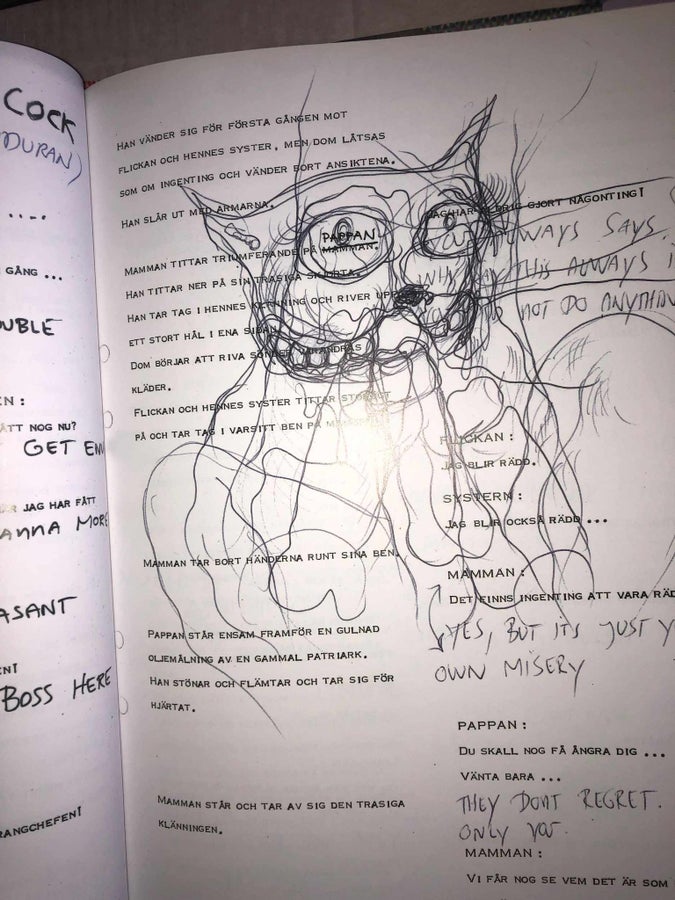 COCK
DURAN)
....
GÅNG ...
UBLE
EN :
ÅTT NOG NU?
GET EN
JAG HAR FÅTT
ANNA MORE
ASANT
BOSS HERE
RANGCHEFEN!
HAN VÄNDER SIG FÖR FÖRSTA GÅNGEN MOT
FLICKAN OCH HENNES SYSTER, MEN DOM LÅTSAS
SOM OM INGENTING OCH VÄNDER BORT ANSIKTENA.
HAN SLÅR UT MED ARMARNA.
PAPPAN
MAMMAN TITTAR TRIUMFERANDE PÅ MAMMAN.
HAN TITTAR NER PÅ SIN TRASIGA SKJORTA.
HAN TAR TAG I HENNES KLÄNNING OCH RIVER UPP
ETT STORT HÅL I ENA SIDAN.
DOM BÖRJAR ATT RIVA SÖNDER VARANDRAS
KLÄDER.
FLICKAN OCH HENNES SYSTER TITTAR STORÖGT
PÅ OCH TAR TAG I VARSITT BEN PÅ
MAMMAN TAR BORT HÄNDERNA RUNT SINA BEN.
PAPPAN STÅR ENSAM FRAMFÖR EN GULNAD
OLJEMÅLNING AV EN GAMMAL PATRIARK.
HAN STÖNAR OCH FLÄMTAR OCH TAR SIG FÖR
HJÄRTAT.
MAMMAN STÅR OCH TAR AV SIG DEN TRASIGA
KLÄNNINGEN.
JAG HAR ALDRIG GJORT NÅGONTING!
ALWAYS SAYS
THIS ALWAYS
NOT DO ANYTHIN
FLICKAN :
JAG BLIR RÄDD.
SYSTERN :
JAG BLIR OCKSÅ RÄDD ...
MAMMAN :
DET FINNS INGENTING ATT VARA RÄD
YES, BUT ITS JUST Y
OWN MISERY
PAPPAN :
DU SKALL NOG FÅ ÅNGRA DIG ...
VÄNTA BARA ...
THEY DONT REGRET.
ONLY YOU.
MAMMAN :
VI FÅR NOG SE VEM DET ÄR SOM